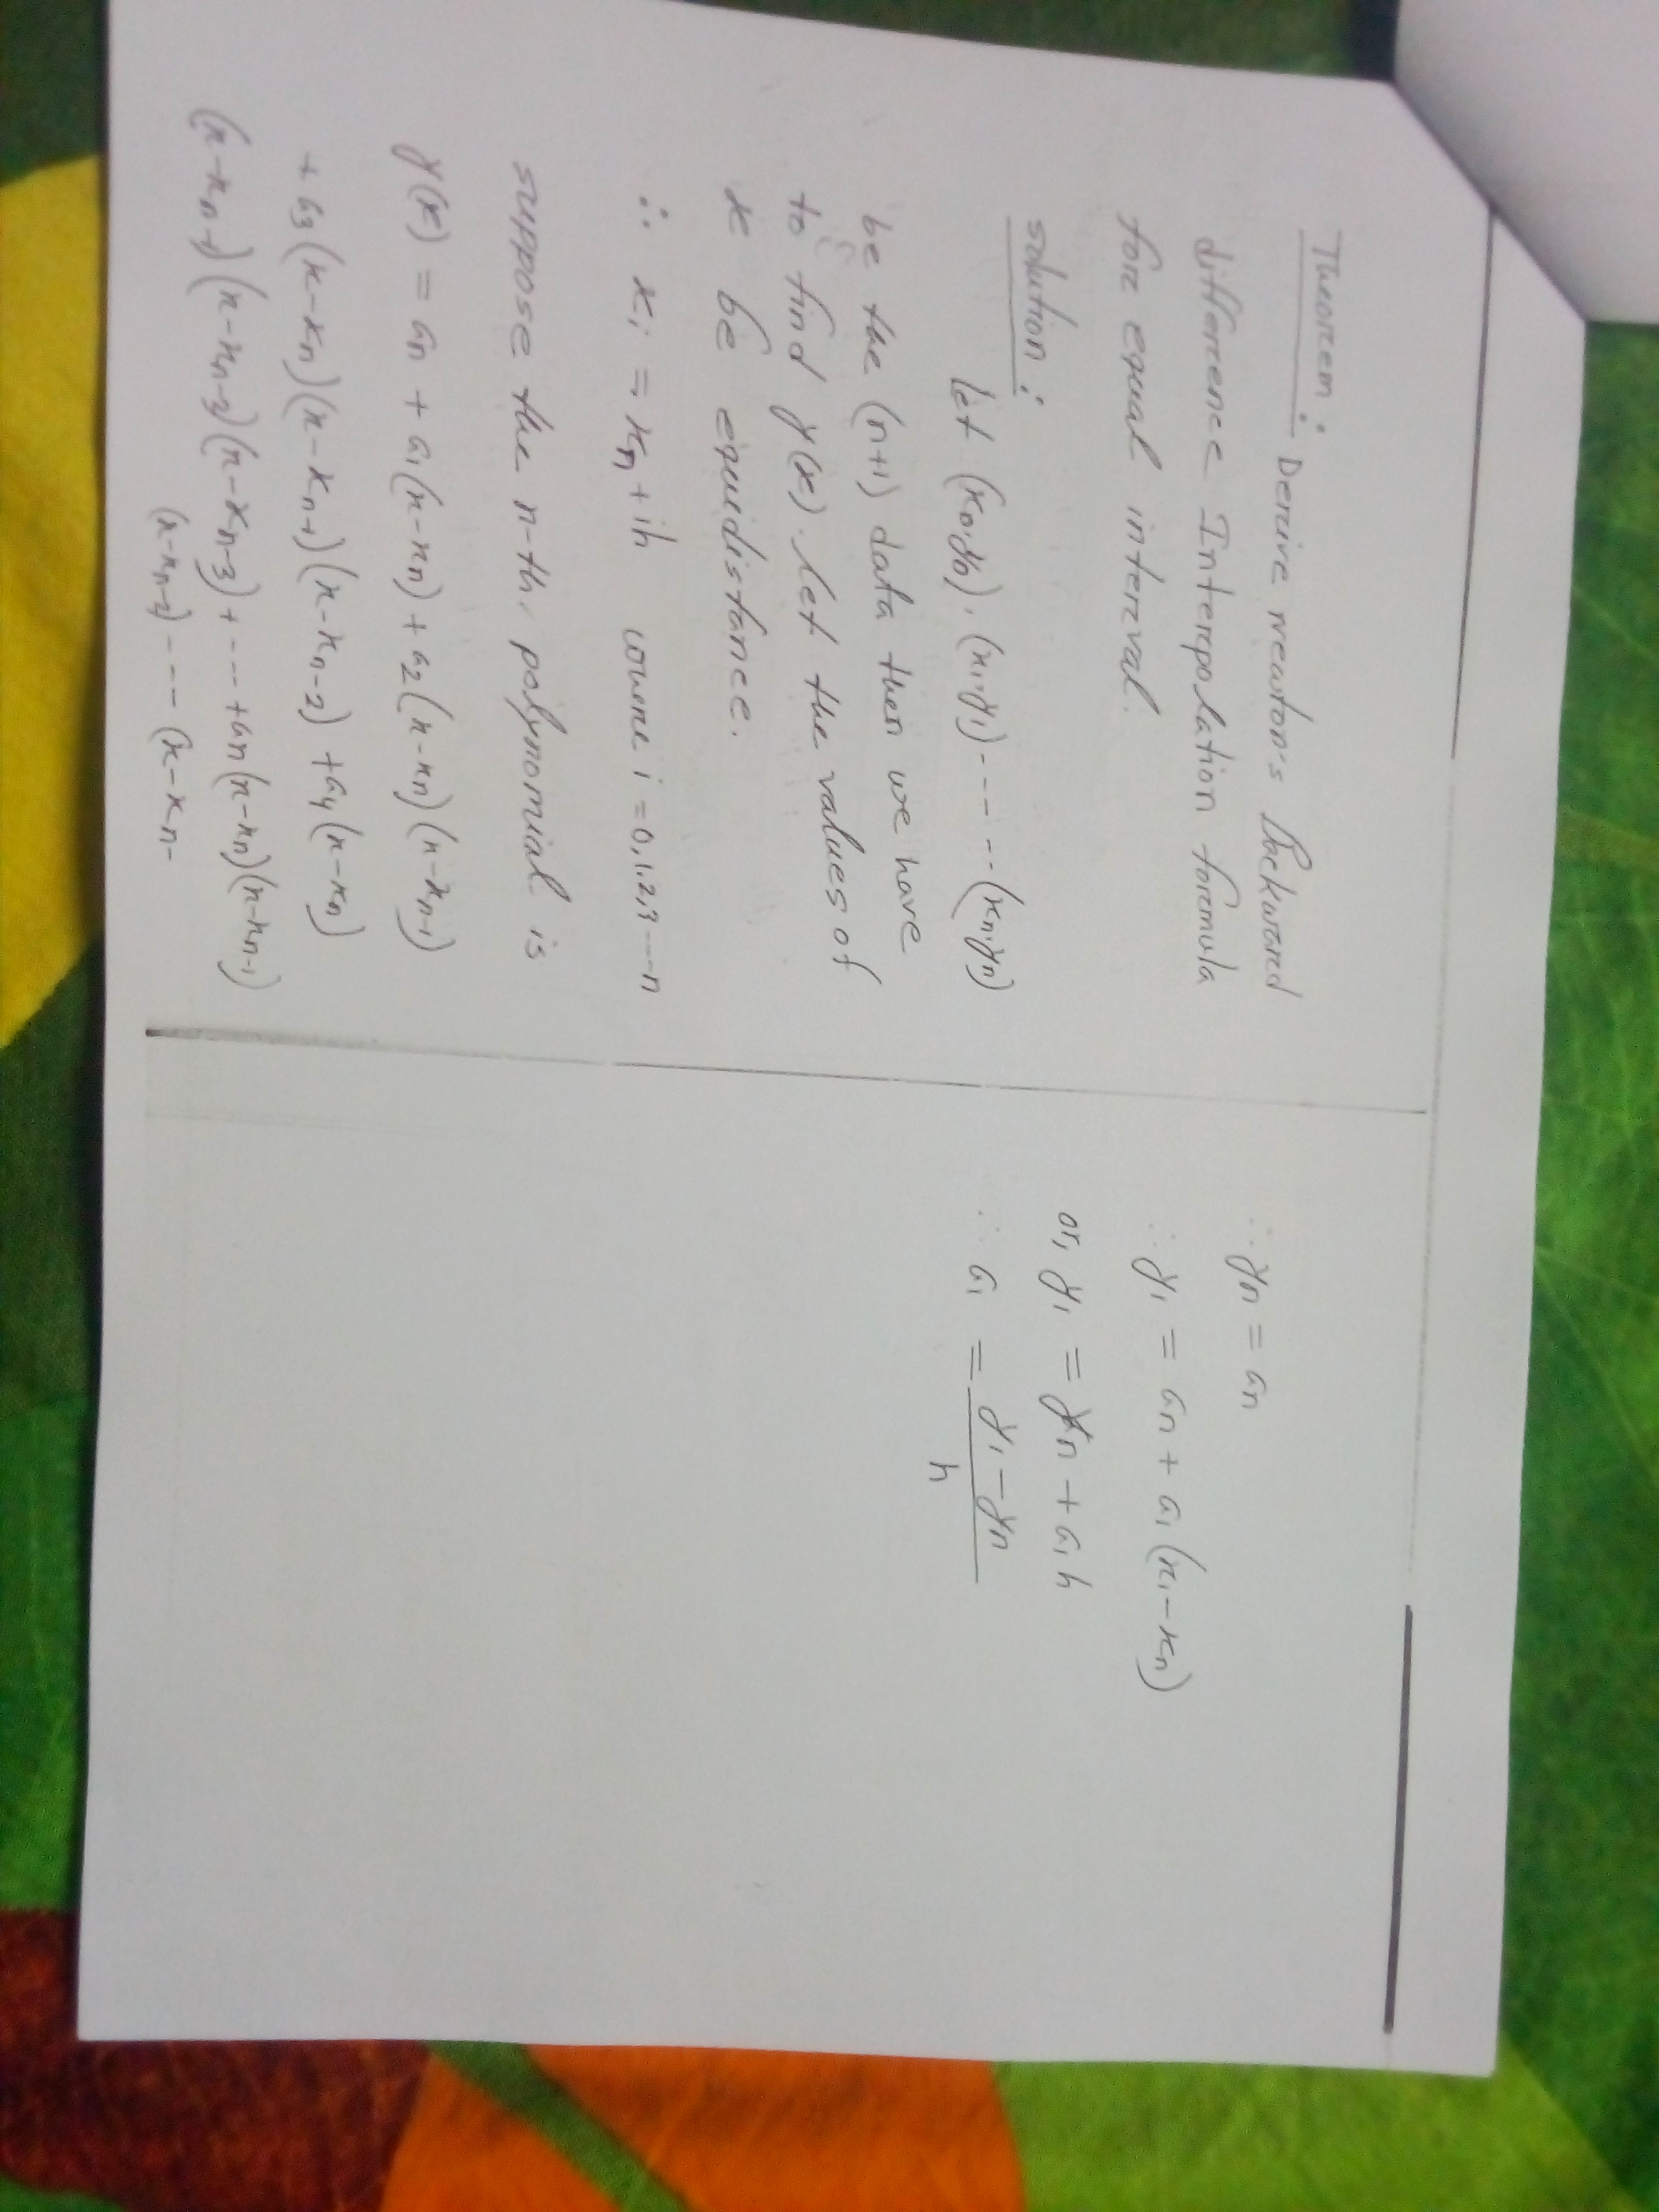 Theorem:
Derive newton's Backward
difference Interpolation formula
for equal interval.
solution:
Let (x₀.y₀), (x₁.y₁)---- --(xₙ.yₙ)
be the (n+1) data then we have
to find y(x). let the values of
x be equidistance.
∴ xᵢ = xₙ + ih where i = 0,1.2,3---n
suppose the n-th polynomial is
y(x) = aₙ + a₁(x-xₙ) + a₂(x-xₙ)(x-xₙ₋₁)
+ a₃(x-xₙ)(x-xₙ₋₁)(x-xₙ₋₂) + a₄(x-xₙ)
(x-xₙ₋₁)(x-xₙ₋₂)(x-xₙ₋₃) + ---- + aₙ(x-xₙ)(x-xₙ₋₁)
(x-xₙ₋₂) ---- (x-xₙ₋
∴ yₙ = aₙ
∴ y₁ = aₙ + a₁(x₁-xₙ)
or, y₁ = yₙ + a₁h
∴ a₁ = y₁-yₙ
h